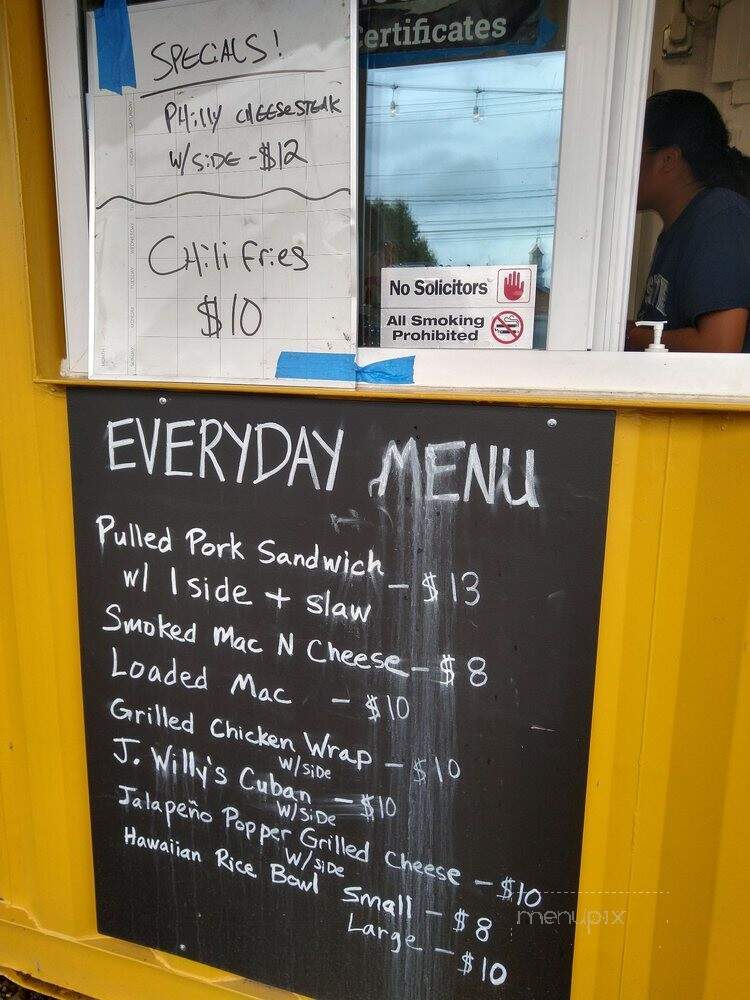 ertificates
SPECiALS!
PHilly CHEESESTEAK
W/SiDE - $12
CHili Fries
$10
No Solicitors
All Smoking
Prohibited
EVERYDAY MENU
Pulled Pork Sandwich
w/ 1 side + slaw - $13
Smoked Mac N Cheese - $8
Loaded Mac - $10
Grilled Chicken Wrap - $10
W/SiDe
J. Willy's Cuban - $10
W/SiDe
Jalapeño Popper Grilled Cheese - $10
W/side
Hawaiian Rice Bowl Small - $8
Large - $10
menupix